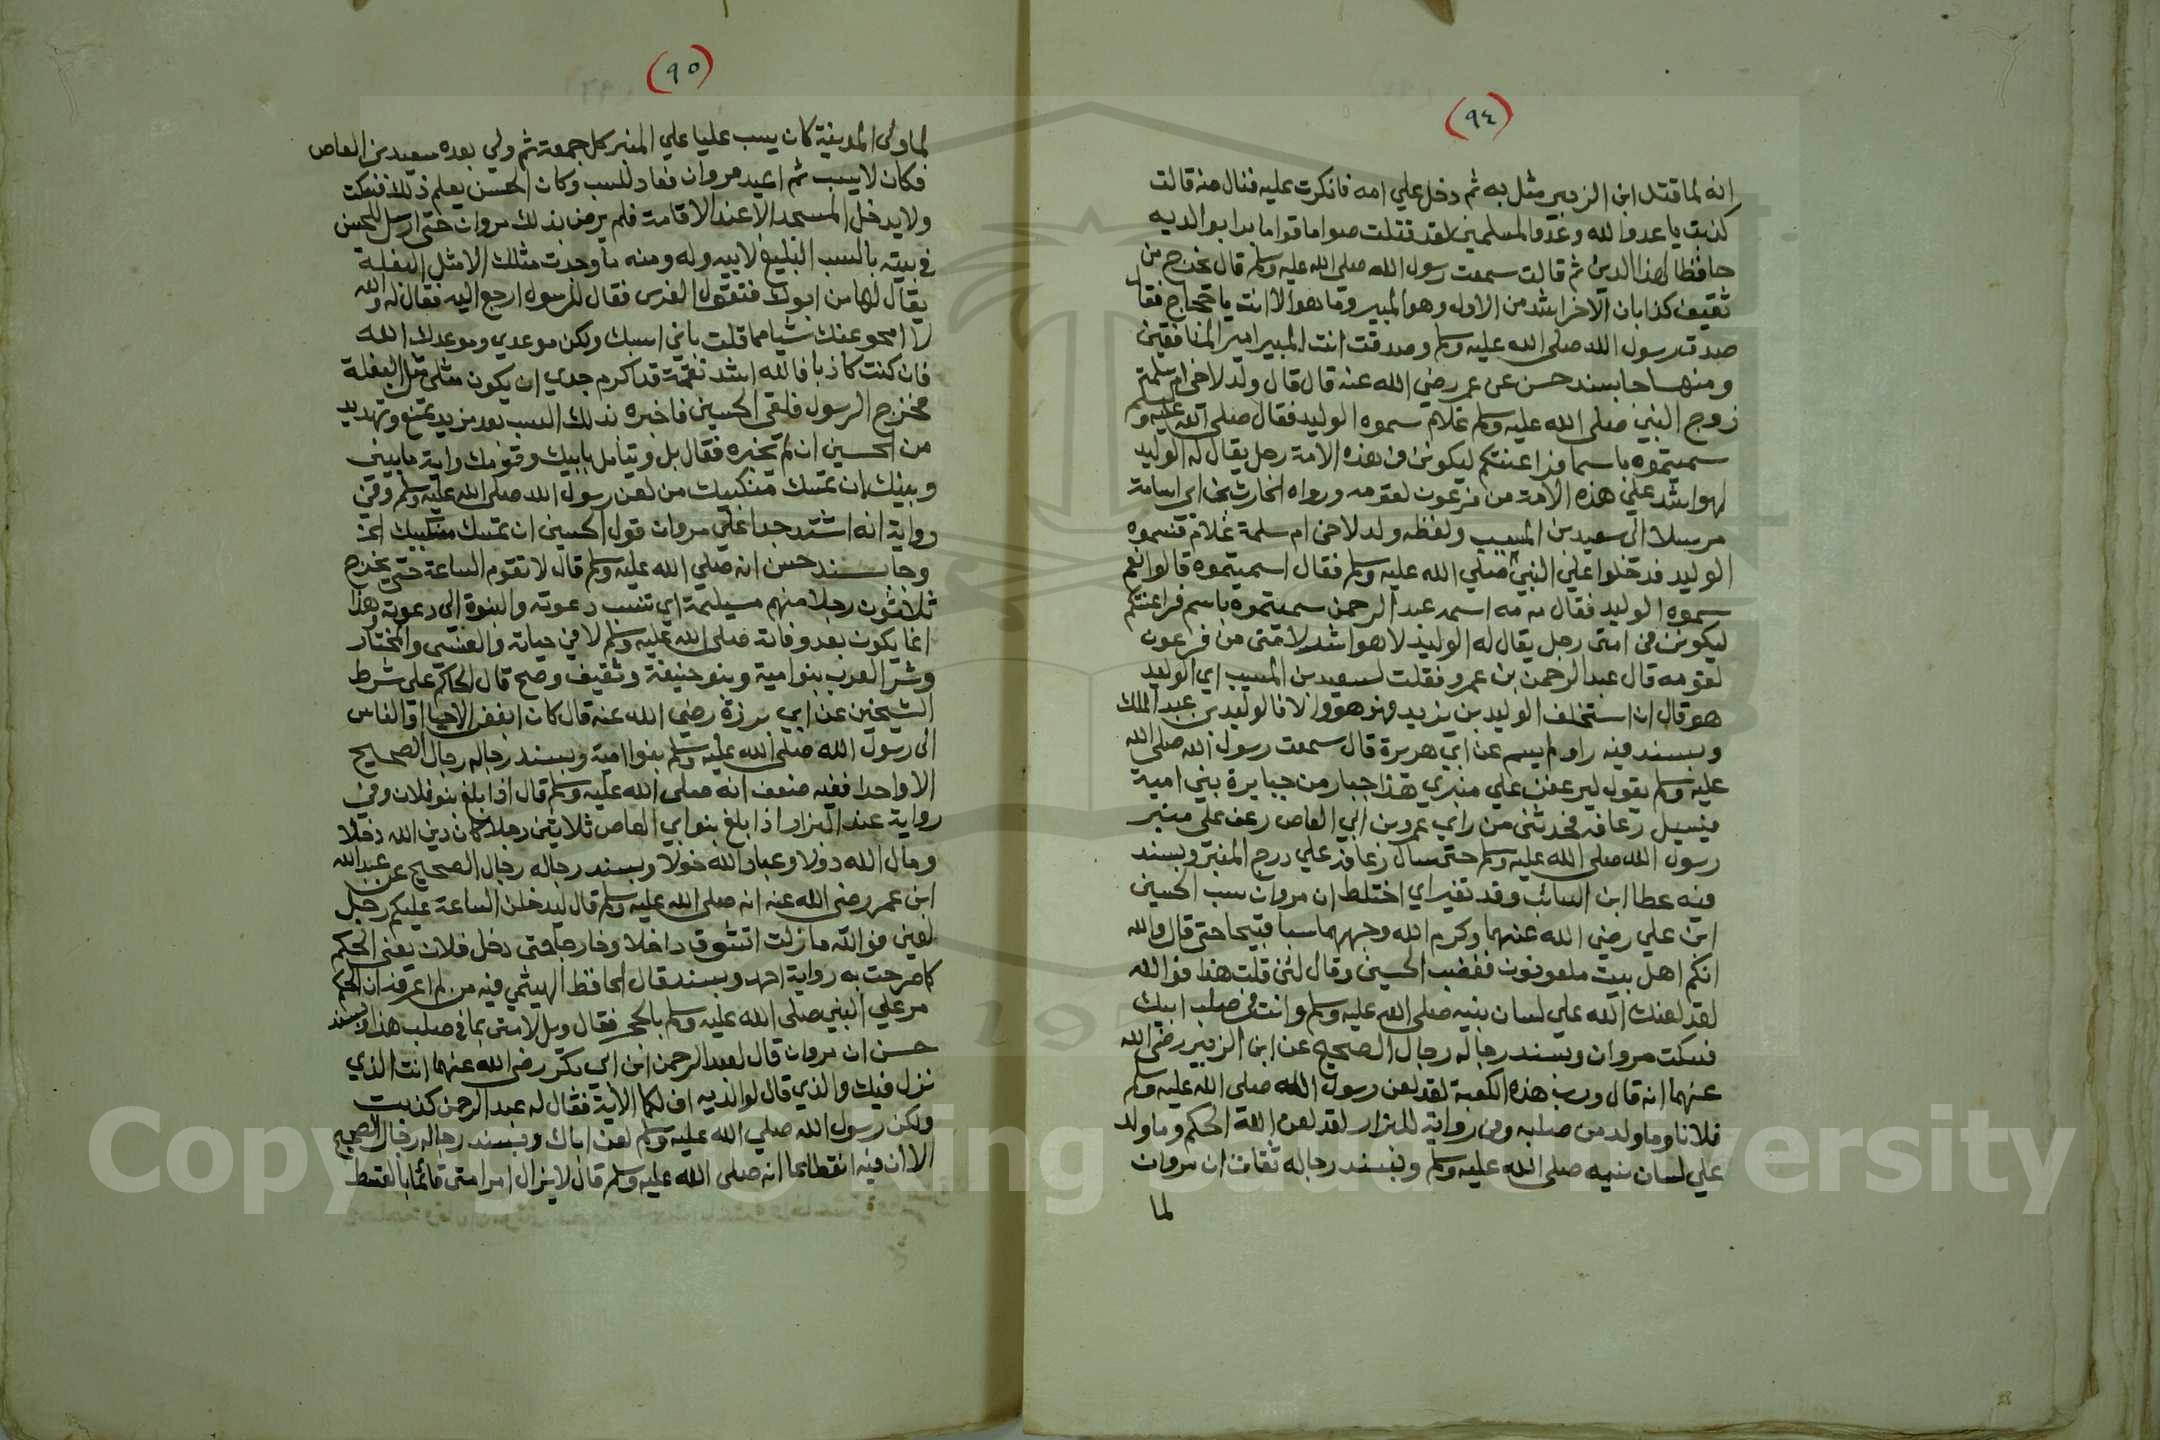 (٩٤)
انه لما قتل ابن الزبير مثل به ثم دخل علي امه فانكرت عليه فنال منه قالت
كذبت يا عدو الله وعدو المسلمين لقد قتلت صواما قواما برا بوالديه
حافظا لهذا الدين ثم قالت سمعت رسول الله صلى الله عليه وسلم قال يخرج من
ثقيف كذابان الآخر اشد من الاول وهو المبير وما هو الا انت يا حجاج فقال
صدق رسول الله صلى الله عليه وسلم وصدقت انت المبير امير المنافقين
ومنها جا بسند حسن عن عمر رضي الله عنه قال قال ولد لاخي ام سلمة
زوج النبي صلى الله عليه وسلم غلام سموه الوليد فقال صلى الله عليه وسلم
سميتموه باسما فراعنتكم ليكونن في هذه الامة رجل يقال له الوليد
لهو اشد علي هذه الامة من فرعون لقومه ورواه الحارث بن ابي اسامة
مرسلا الى سعيد بن المسيب ولفظه ولد لاخي ام سلمة غلام فسموه
الوليد فدخلوا علي النبي صلي الله عليه وسلم فقال اسميتموه قالوا نعم
سموه الوليد فقال مه مه اسمه عبد الرحمن سميتموه باسم فراعنتكم
ليكونن في امتي رجل يقال له الوليد لاهو اشد لامتي من فرعون
لقومه قال عبد الرحمن بن عمرو فقلت لسعيد بن المسيب اي الوليد
هو قال ان استخلف الوليد بن يزيد فهو هو والا فالوليد بن عبد الملك
وبسند فيه راو لم يسم عن ابي هريرة قال سمعت رسول الله صلى الله
عليه وسلم يقول ليرعفن علي منبري هذا جبار من جبابرة بني امية
فيسيل رعافه فحدثني من راي عمرو بن ابي العاص رعف علي منبر
رسول الله صلى الله عليه وسلم حتى سال رعافه علي درج المنبر وبسند
فيه عطا ابن السائب وقد تغير اي اختلط ان مروان سب الحسين
ابن علي رضي الله عنهما وكرم الله وجههما سبا قبيحا حتى قال والله
انكم اهل بيت ملعونون فغضب الحسين وقال لئن قلت هذا فوالله
لقد لعنك الله علي لسان نبيه صلى الله عليه وسلم وانت في صلب ابيك
فسكت مروان وبسند رجاله رجال الصحيح عن ابن الزبير رضي الله
عنهما انه قال ورب هذه الكعبة لقد لعن رسول الله صلى الله عليه وسلم
فلانا وما ولد من صلبه وفي رواية للبزار لقد لعن الله الحكم وما ولد
علي لسان نبيه صلى الله عليه وسلم وبسند رجاله ثقات ان مروان
لما
(٩٥)
لما ولى المدينة كان يسب عليا علي المنبر كل جمعة ثم ولي بعده سعيد بن العاص
فكان لا يسب ثم اعيد مروان فعاد للسب وكان الحسن يعلم ذلك فسكت
ولا يدخل المسجد الا عند الاقامة فلم يرض بذلك مروان حتى ارسل للحسن
في بيته بالسب البليغ لابيه وله ومنه ما وجدت مثلك الا مثل البغلة
يقال لها من ابوك فتقول الفرس فقال للرسول ارجع اليه فقال له والله
لا امحو عنك شيا مما قلت باني اسبك ولكن موعدي وموعدك الله
فان كنت كاذبا فالله اشد نقمة قد اكرم جدي ان يكون مثلي مثل البغلة
فخرج الرسول فلقي الحسين فاخبره بذلك السب بعد مزيد تمنع وتهديد
من الحسين ان لم يخبره فقال بل وتيامل بابيك وقومك واية ما بيني
وبينك ان تمسك منكبيك من لعن رسول الله صلى الله عليه وسلم وفي
رواية انه اشتد جدا علي مروان قول الحسين ان تمسك منكبيك الخ
وجا بسند حسن انه صلي الله عليه وسلم قال لا تقوم الساعة حتي يخرج
ثلاثون رجلا منهم مسيلمة اي تنسب دعوته والنبوة الي دعوته وهذا
انما يكون بعد وفاته صلى الله عليه وسلم لا في حياته والعنسي والمختار
وشر العرب بنو امية وبنو حنيفة وثقيف وصح قال الحاكم على شرط
الشيخين عن ابي برزة رضي الله عنه قال كان ابغض الاحيا او الناس
الى رسول الله صلى الله عليه وسلم بنو امية وبسند رجاله رجال الصحيح
الا واحدا ففيه ضعف انه صلى الله عليه وسلم قال اذا بلغ بنو فلان وفي
رواية عند البزار اذا بلغ بنو ابي العاص ثلاثين رجلا كان دين الله دخلا
ومال الله دولا وعباد الله خولا وبسند رجاله رجال الصحيح عن عبد الله
ابن عمر رضي الله عنه انه صلى الله عليه وسلم قال ليدخلن الساعة عليكم رجل
لعين فوالله ما زلت اتشوق داخلا وخارجا حتى دخل فلان يعني الحكم
كما صرحت به رواية احمد وبسند قال الحافظ الهيثمي فيه من لم اعرفه ان الحكم
مر علي النبي صلى الله عليه وسلم بالحجر فقال ويل لامتي مما في صلب هذا وبسند
حسن ان مروان قال لعبد الرحمن ابن ابي بكر رضي الله عنهما انت الذي
نزل فيك والذي قال لوالديه اف لكما الآية فقال له عبد الرحمن كذبت
ولكن رسول الله صلي الله عليه وسلم لعن اباك وبسند رجاله رجال الصحيح
الا ان فيه انقطاعا انه صلى الله عليه وسلم قال لا يزال امر امتي قائما بالقسط